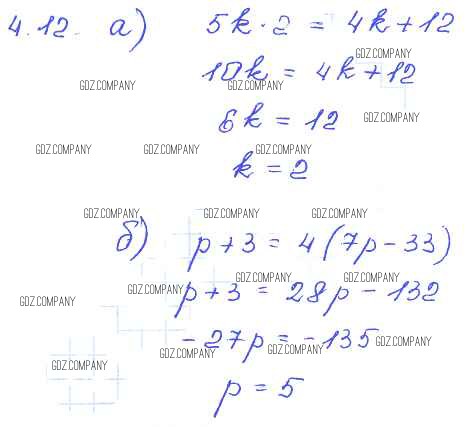 4.12. а) 5k · 2 = 4k + 12
GDZ.COMPANY
10k = 4k + 12
GDZ.COMPANY GDZ.COMPANY
6k = 12 GDZ.COMPANY
GDZ.COMPANY GDZ.COMPANY GDZ.COMPANY
k = 2
GDZ.COMPANY GDZ.COMPANY GDZ.COMPANY
б) p + 3 = 4 (7p - 33)
GDZ.COMPANY GDZ.COMPANY
GDZ.COMPANY GDZ.COMPANY
p + 3 = 28p - 132
- 27p = - 135 GDZ.COMPANY
GDZ.COMPANY GDZ.COMPANY
GDZ.COMPANY
p = 5